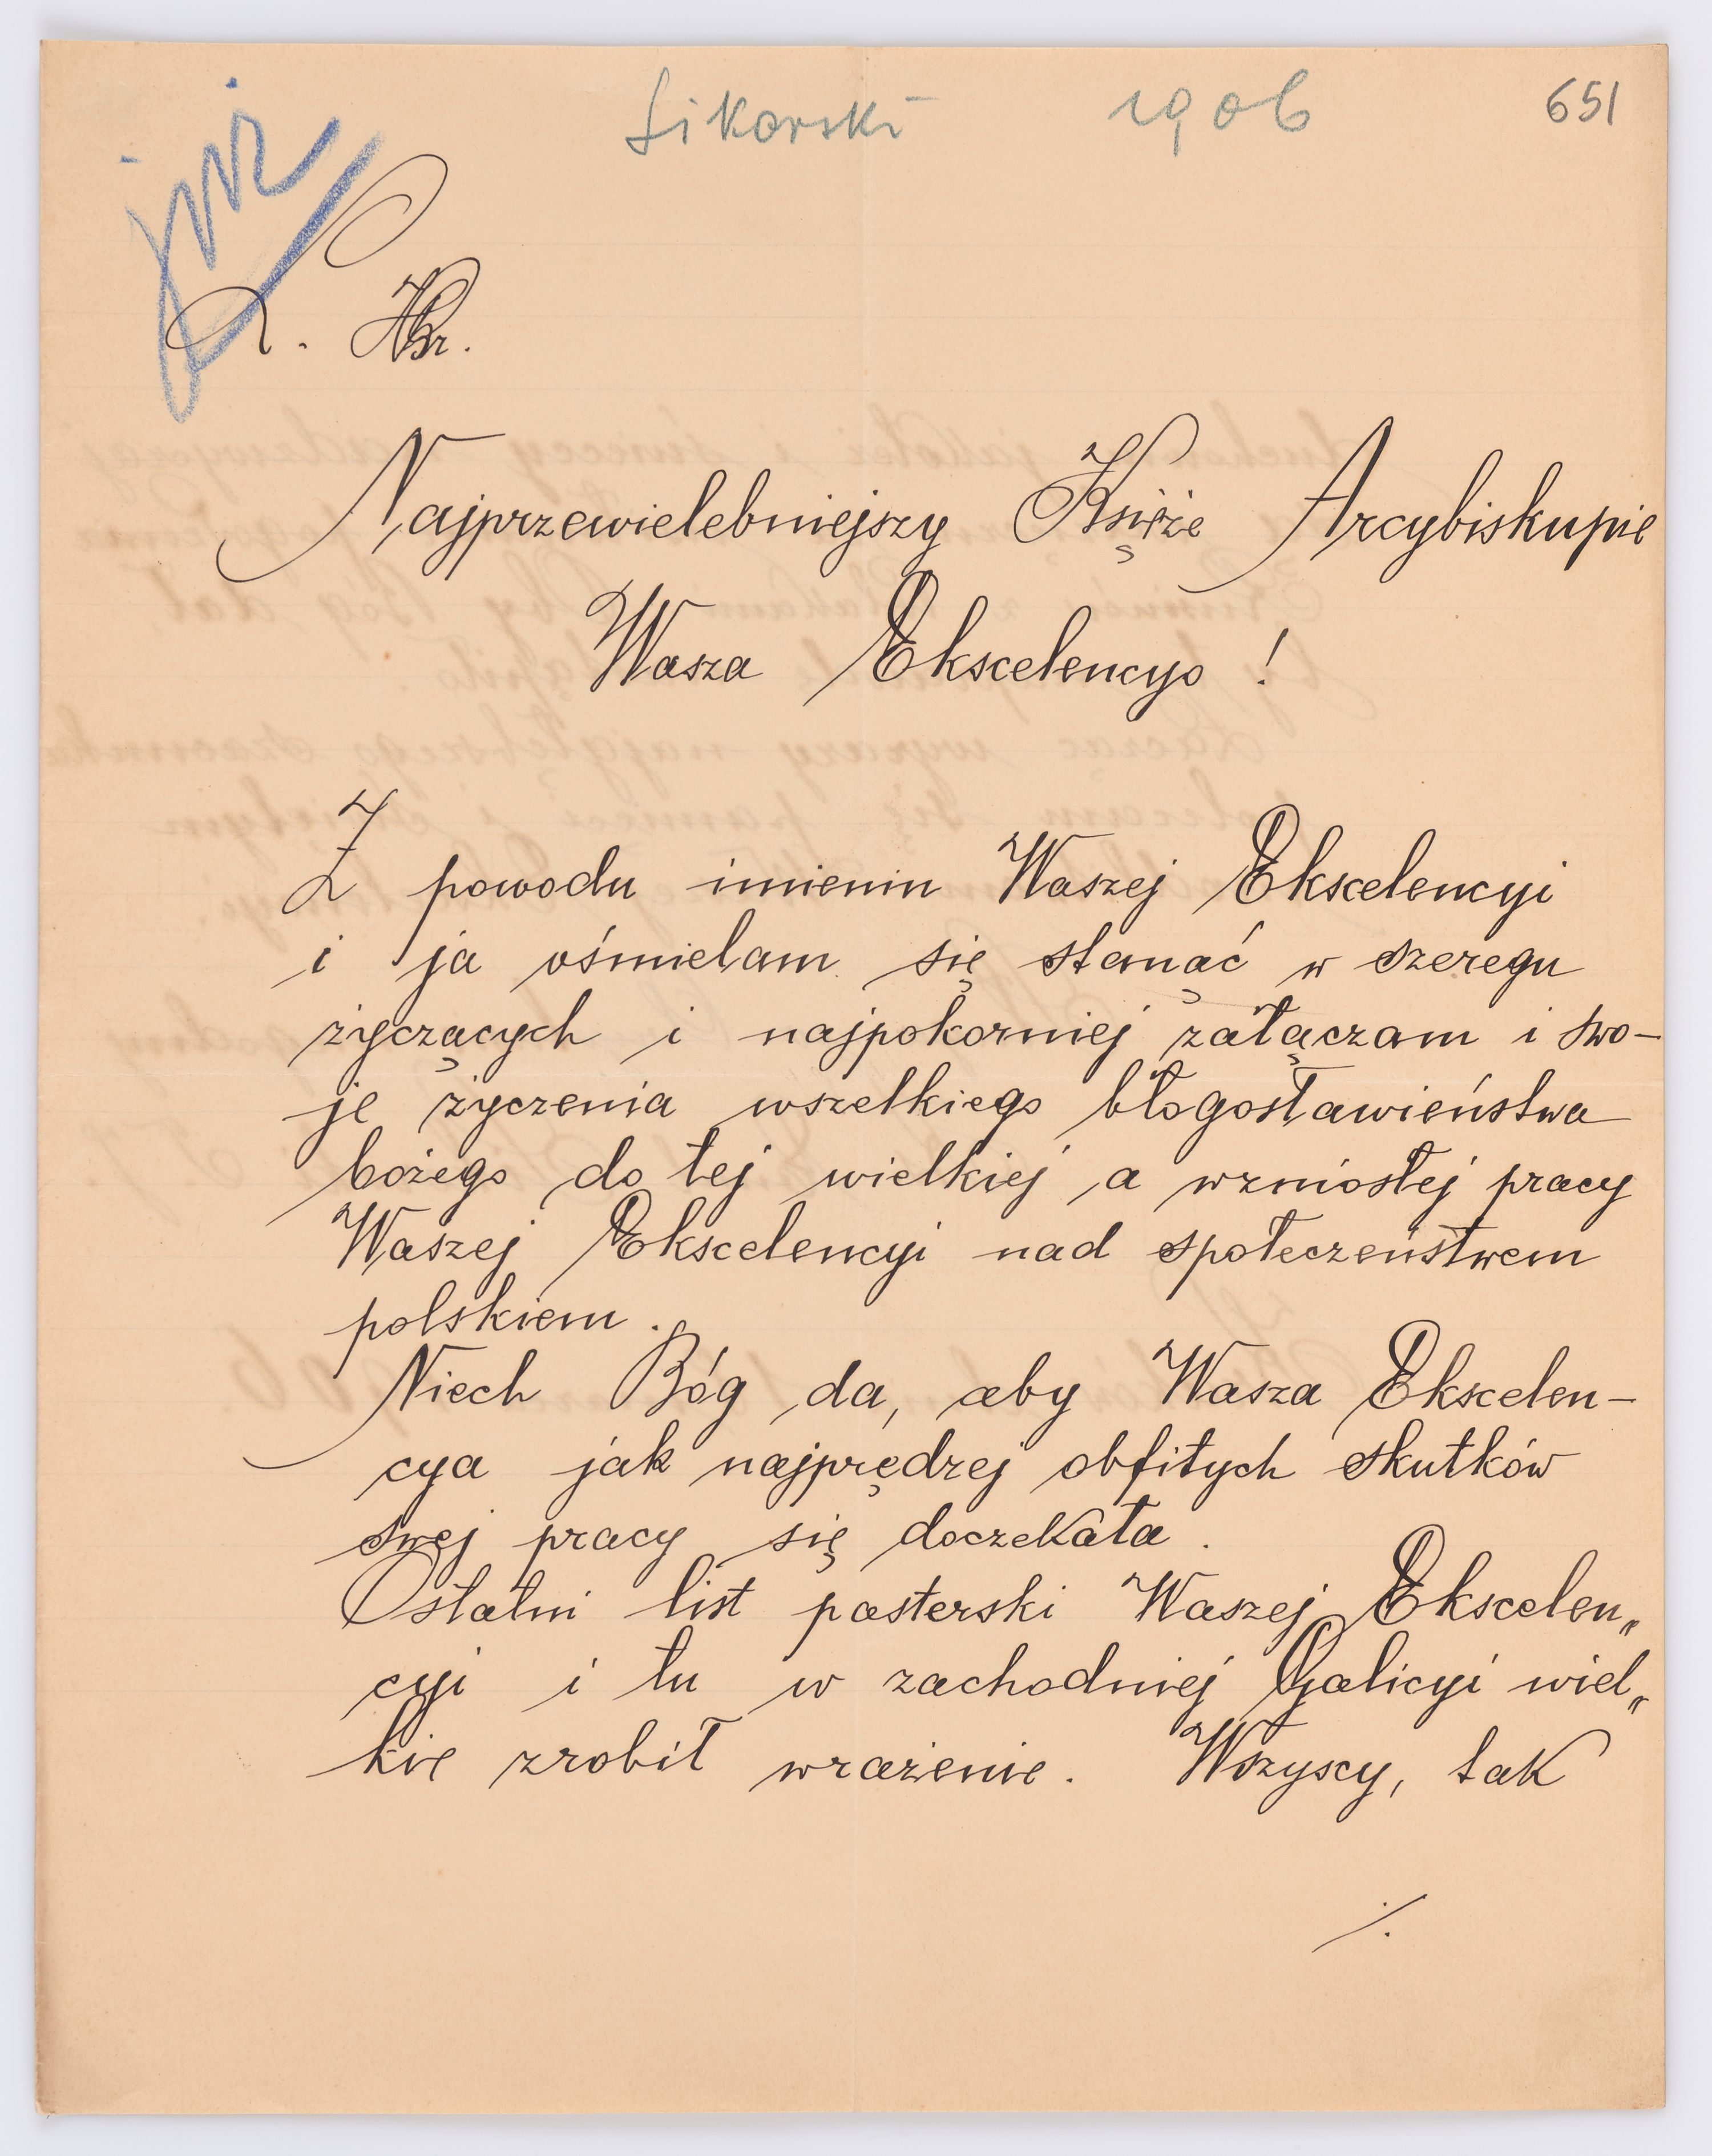 Sikorski 1906 651
Najprzewielebniejszy Księże Arcybiskupie
Wasza Ekscelencyo !
Z powodu imienin Waszej Ekscelencyi
i ja ośmielam się stanąć w szeregu
życzących i najpokorniej załączam i swo-
je życzenia wszelkiego błogosławieństwa
bożego do tej wielkiej a wzniosłej pracy
Waszej Ekscelencyi nad społeczeństwem
polskiem.
Niech Bóg da, aby Wasza Ekscelen-
cya jak najprędzej obfitych skutków
swej pracy się doczekała.
Ostatni list pasterski Waszej Ekscelen„
cyi i tu w zachodniej Galicyi wiel„
kie zrobił wrażenie. Wszyscy, tak
./.